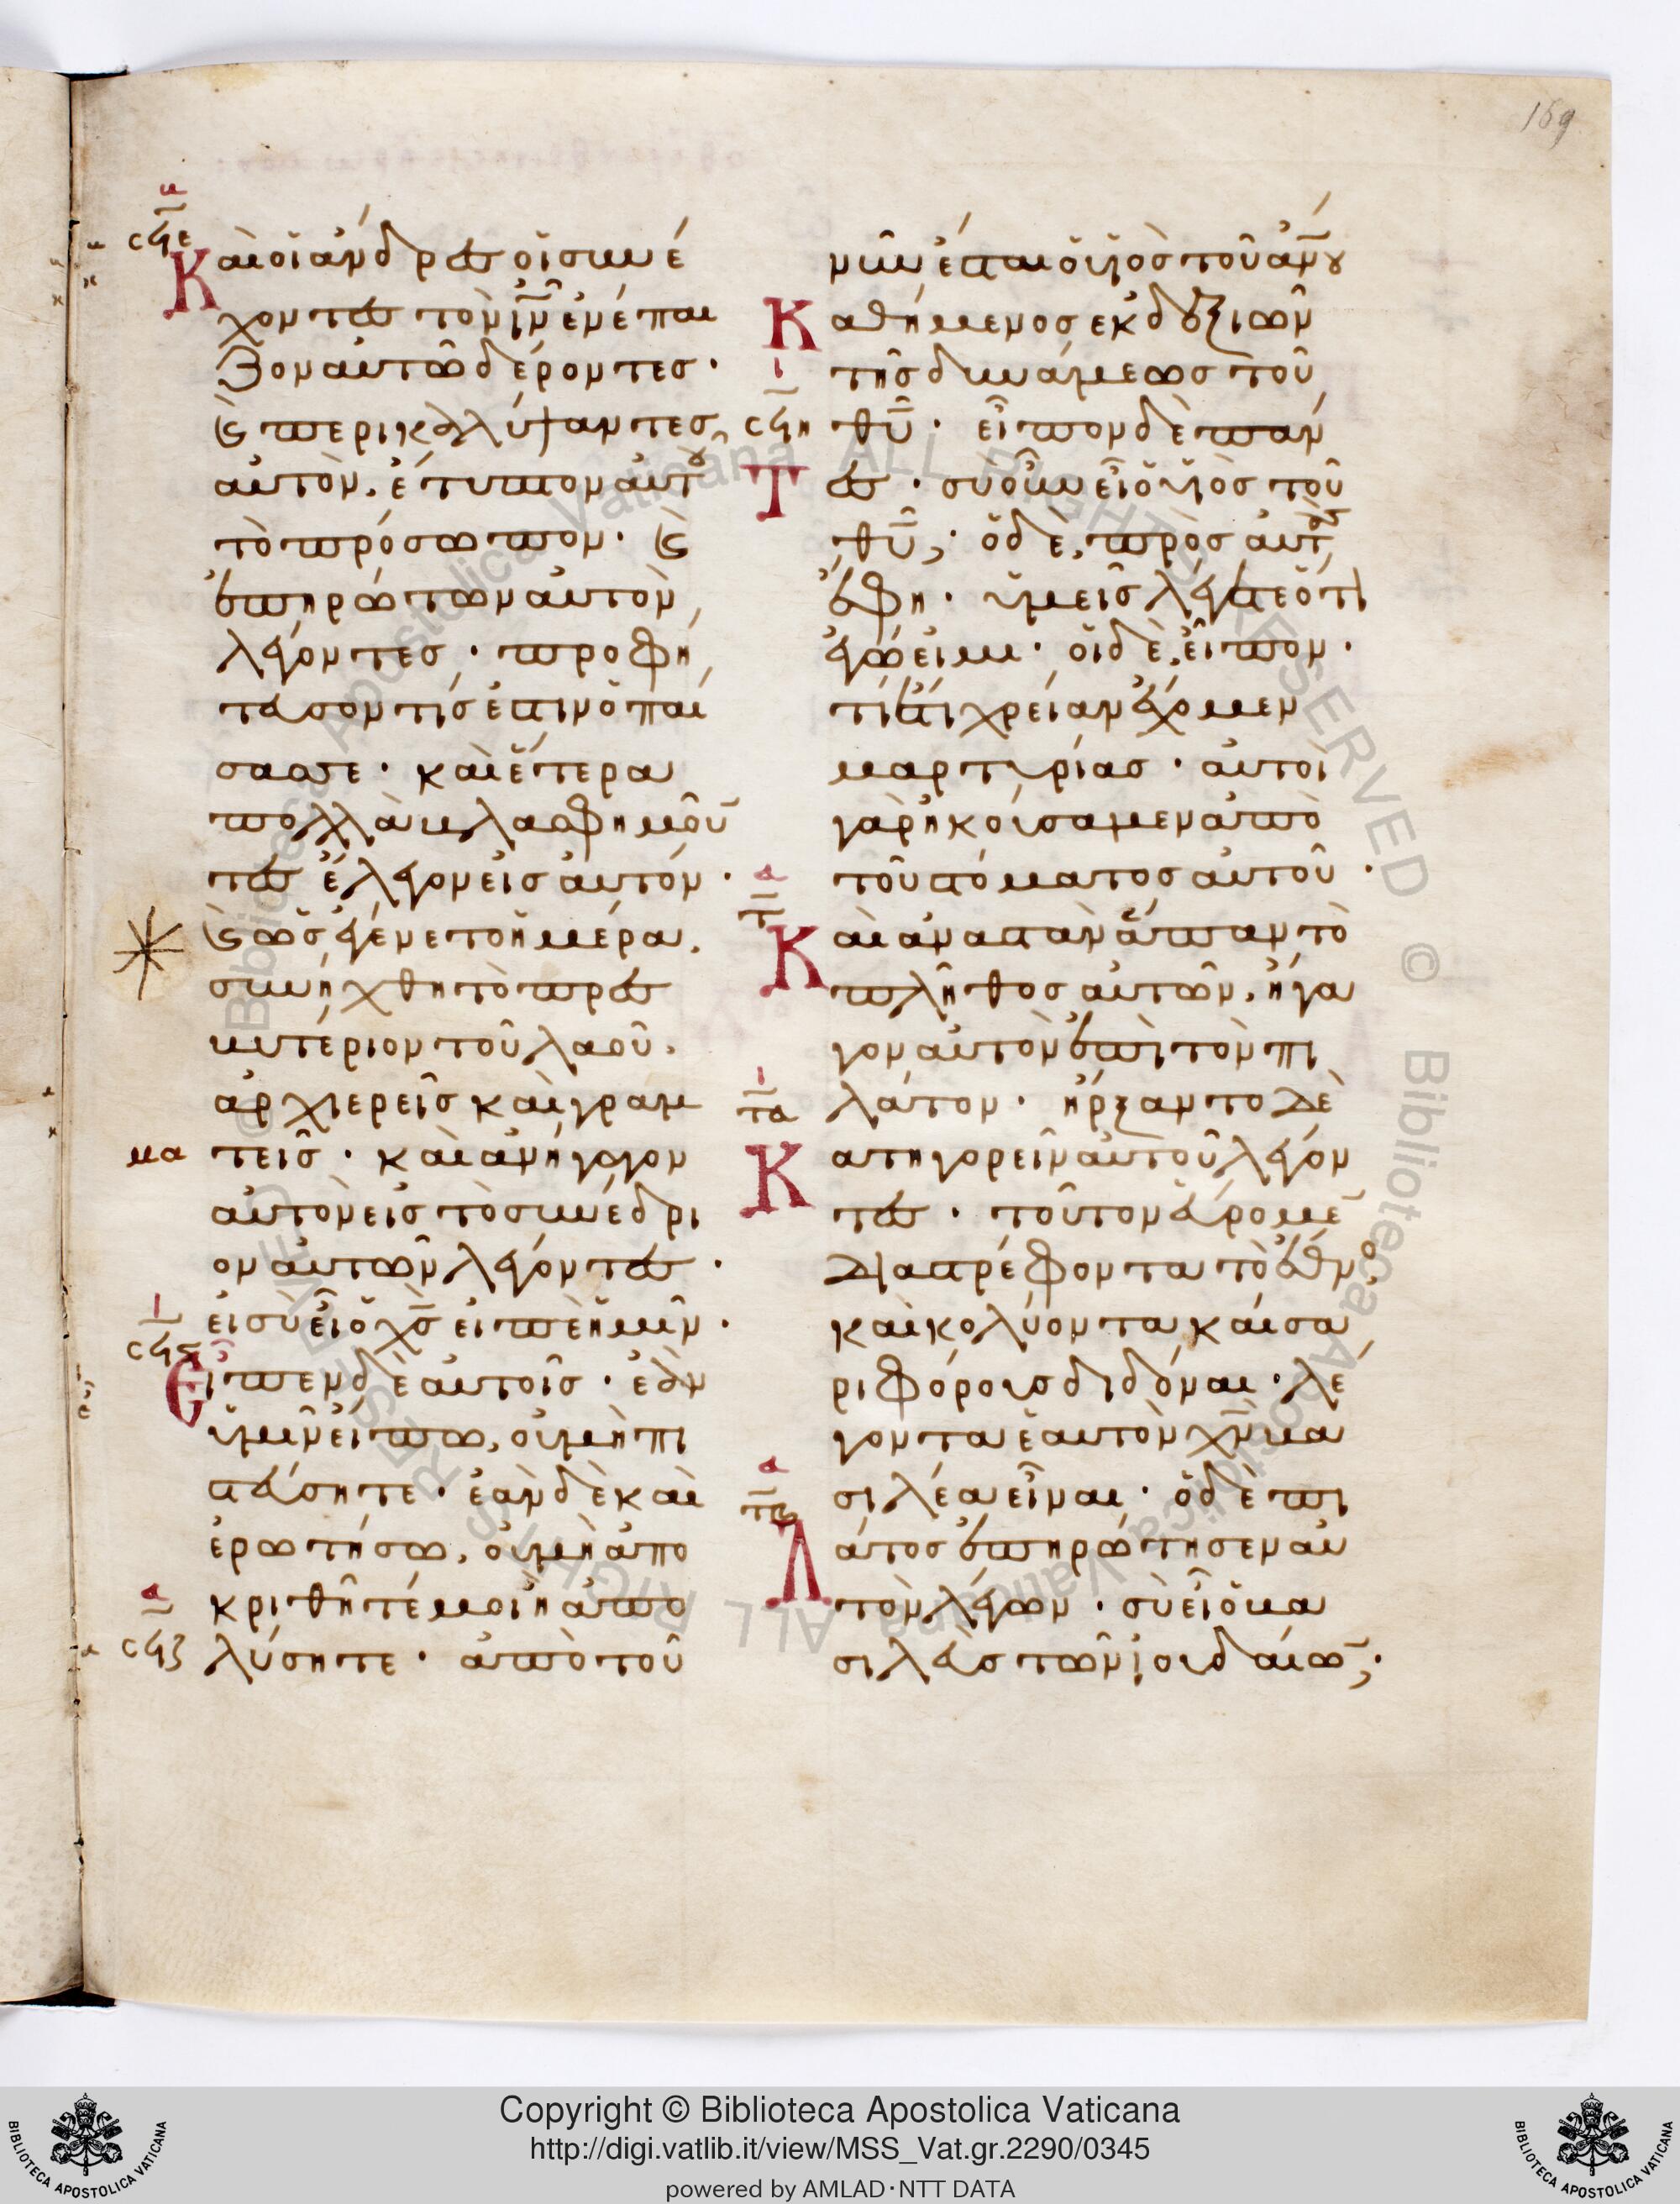 169
σϟε
Καὶ οἱ ἄνδρες οἱ συνέ
χοντες τὸν ιν̅ ἐνέπαι
ζον αὐτῶ δέροντες·
ϗ περικαλύψαντες
αὐτὸν, ἔτυπτον αὐτοῦ
τὸ πρόσωπον· ϗ
ἐπηρώτων αὐτὸν,
λέγοντες· προφή
τευσον τίς ἐστιν ὁ παί
σας σε· καὶ ἕτερα
πολλὰ βλασφημοῦν
τες ἔλεγον εἰς αὐτόν·
ϗ ὡς ἐγένετο ἡμέρα,
συνήχθη τὸ πρεσ
βυτέριον τοῦ λαοῦ,
ἀρχιερεῖς καὶ γραμ
μα τεῖς· καὶ ἀνήγαγον
αὐτὸν εἰς τὸ συνέδρι
ον αὐτῶν λέγοντες·
εἰ σὺ εἶ ὁ χς̅ εἰπὲ ἡμῖν·
σϟϛ
Εἶπεν δὲ αὐτοῖς· ἐὰν
ὑμῖν εἴπω, οὐ μὴ πι
στεύσητε· ἐὰν δὲ καὶ
ἐρωτήσω, οὐ μὴ ἀπο
κριθῆτέ μοι ἢ ἀπο
σϟζ λύσητε· ἀπὸ τοῦ
νῦν ἔσται ὁ υἱὸς τοῦ αν̅ου
Καθήμενος ἐκ δεξιῶν
τῆς δυνάμεως τοῦ
σϟη θυ̅· εἶπον δὲ πάν
Τες· σὺ οὖν εἶ ὁ υἱὸς τοῦ
θυ̅; ὁ δὲ, πρὸς αὐτοὺς
ἔφη· ὑμεῖς λέγετε ὅτι
ἐγώ εἰμι· οἱ δὲ, εἶπον·
τί ἔτι χρείαν ἔχομεν
μαρτυρίας· αὐτοὶ
γὰρ ἠκούσαμεν ἀπὸ
τοῦ στόματος αὐτοῦ·
τ
Καὶ ἀναστὰν ἅπαν τὸ
πλῆθος αὐτῶν, ἤγα
γον αὐτὸν ἐπὶ τὸν πι
τα λάτον· ἤρξαντο δὲ
Κατηγορεῖν αὐτοῦ λέγον
τες· τοῦτον εὕρομεν
διαστρέφοντα τὸ ἔθνος
καὶ κολύοντα καίσα
ρι φόρους διδόναι· λέ
γοντα ἑαυτὸν χν̅ βα
τβ σιλέα εἶναι· ὁ δὲ πι
Λάτος ἐπηρώτησεν αὐ
τὸν λέγων· σὺ εἶ ὁ βα
σιλεὺς τῶν ἰουδαίων;
Copyright © Biblioteca Apostolica Vaticana
http://digi.vatlib.it/view/MSS_Vat.gr.2290/0345
powered by AMLAD·NTT DATA
BIBLIOTECA APOSTOLICA VATICANA
BIBLIOTECA APOSTOLICA VATICANA